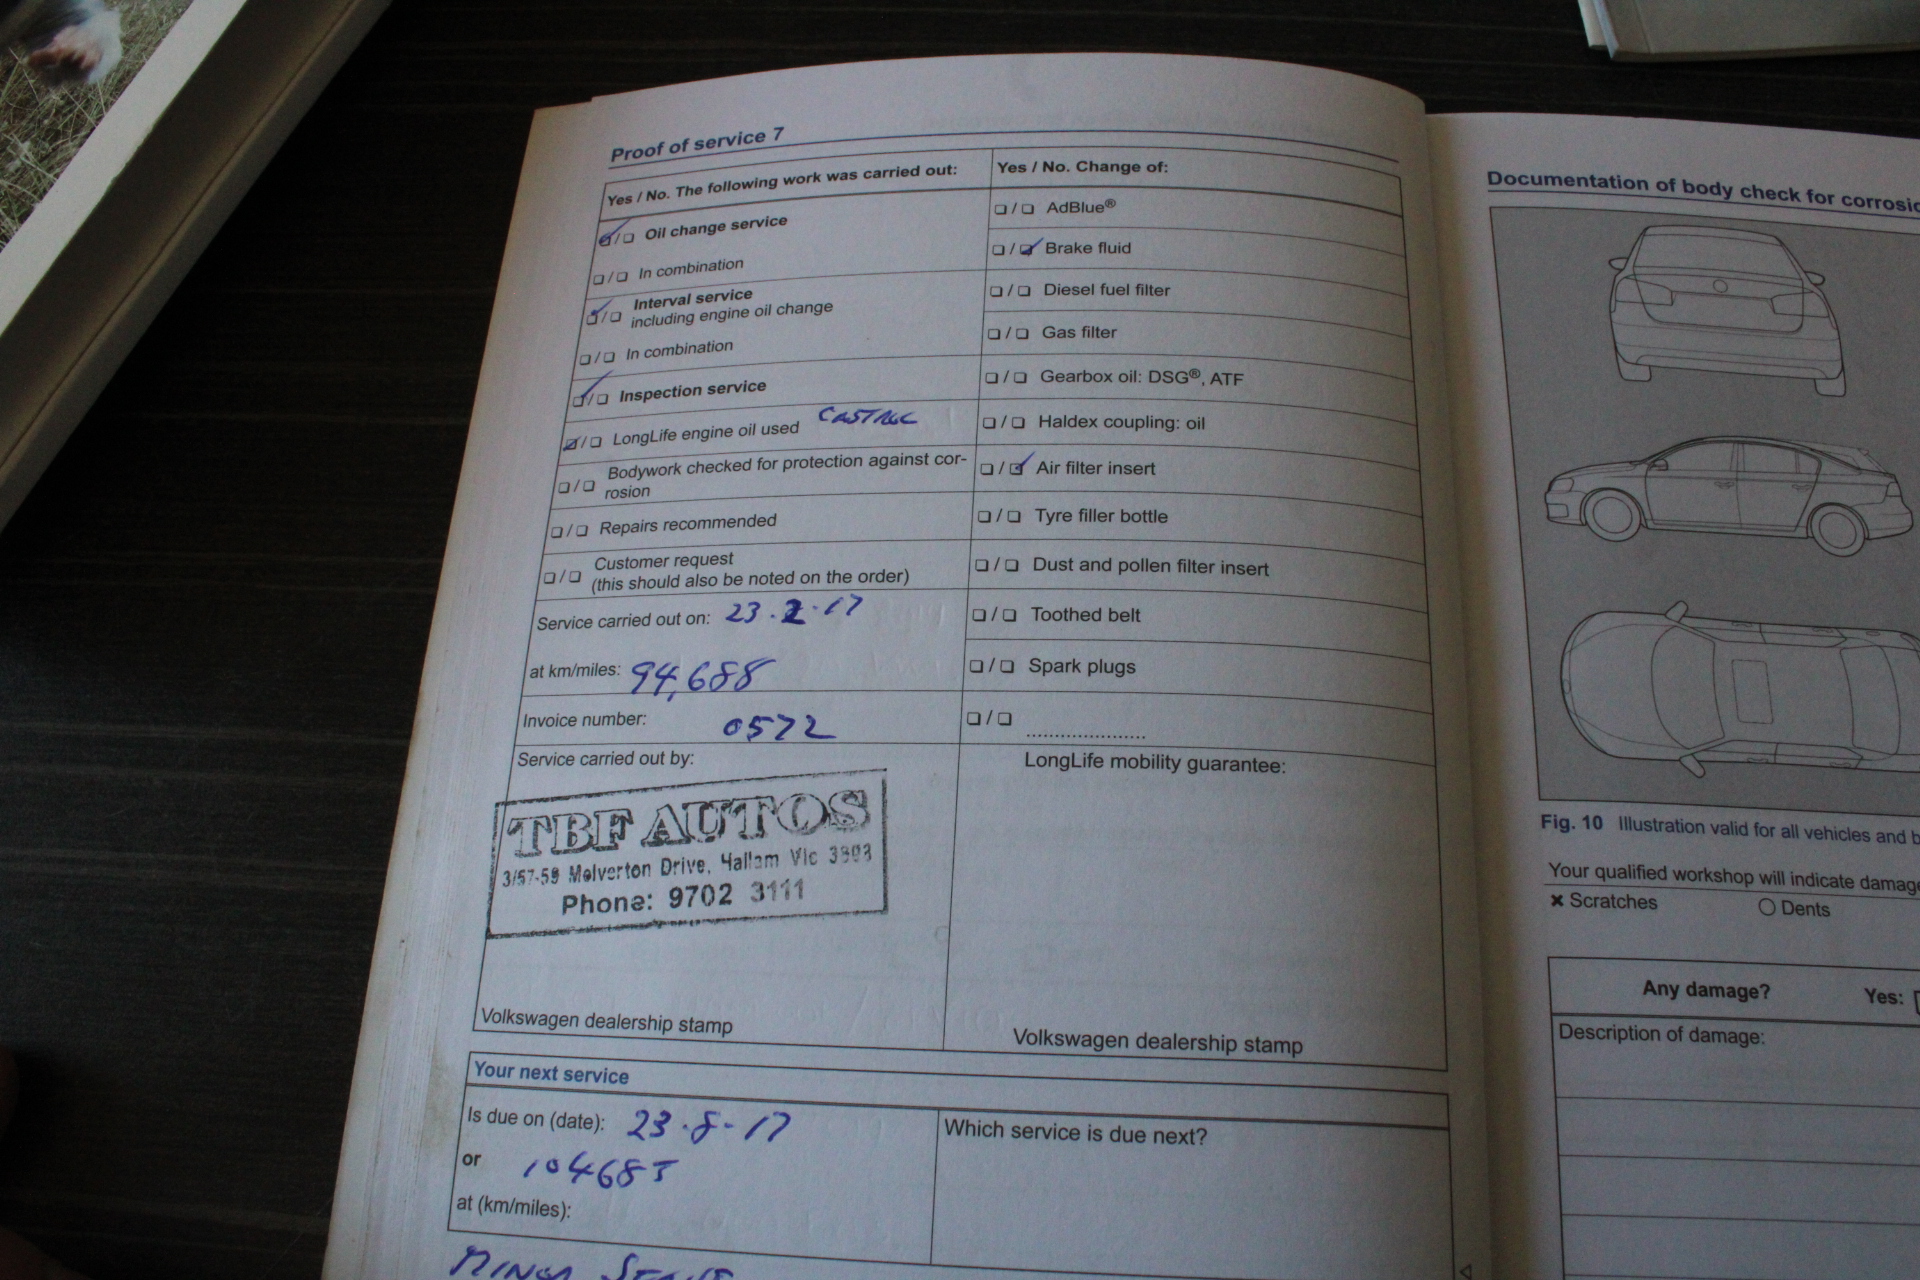 Proof of service 7
Yes / No. The following work was carried out:
☑/❏ Oil change service
❏/❏ In combination
☑/❏ Interval service
including engine oil change
❏/❏ In combination
☑/❏ Inspection service
☑/❏ LongLife engine oil used CASTROL
❏/❏ Bodywork checked for protection against cor-
rosion
❏/❏ Repairs recommended
❏/❏ Customer request
(this should also be noted on the order)
Service carried out on: 23.2.17
at km/miles: 94,688
Invoice number: 0572
Service carried out by:
TBF AUTOS
3/57-59 Melverton Drive, Hallam Vic 3803
Phone: 9702 3111
Volkswagen dealership stamp
Yes / No. Change of:
❏/❏ AdBlue®
❏/☑ Brake fluid
❏/❏ Diesel fuel filter
❏/❏ Gas filter
❏/❏ Gearbox oil: DSG®, ATF
❏/❏ Haldex coupling: oil
❏/☑ Air filter insert
❏/❏ Tyre filler bottle
❏/❏ Dust and pollen filter insert
❏/❏ Toothed belt
❏/❏ Spark plugs
❏/❏ ....................
LongLife mobility guarantee:
Volkswagen dealership stamp
Your next service
Is due on (date): 23.8-17
or 104685
at (km/miles):
Which service is due next?
MINOR
Documentation of body check for
Fig. 10 Illustration valid for all vehicles and
Your qualified workshop will indicate
× Scratches ○ Dents
Any damage? Yes:
Description of damage: